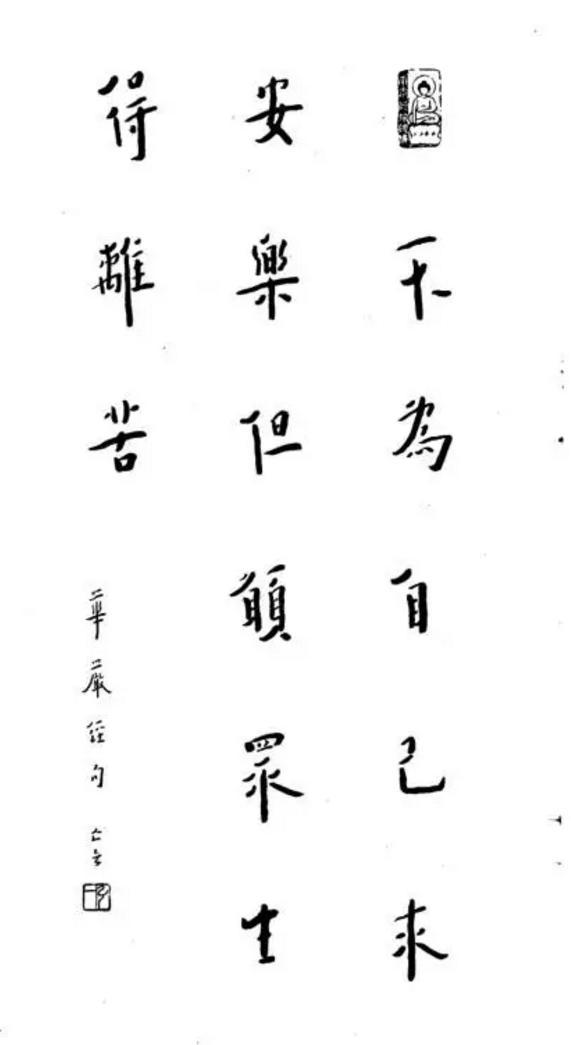 不為自己求
安樂但願眾生
得離苦
華嚴經句 亡言